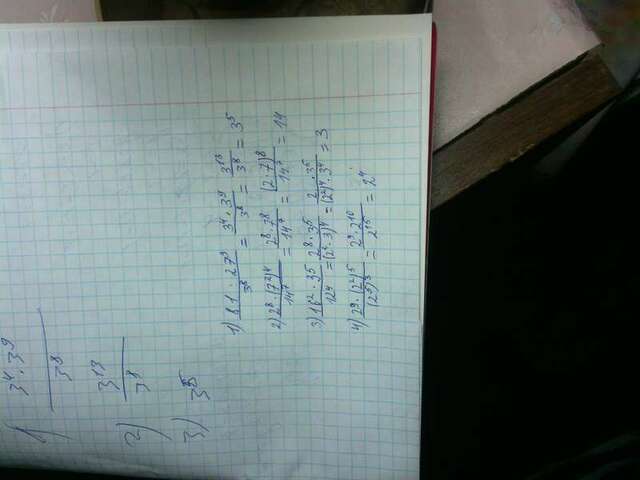 1) 3⁴·3⁹ / 3⁸
2) 3¹³ / 3⁸
3) 3⁵
1) 81·27⁹ / 3⁸ = 3⁴·3⁹ / 3⁸ = 3¹³ / 3⁸ = 3⁵
2) 2⁸·(7²)⁴ / 14⁷ = 2⁸·7⁸ / 14⁷ = (2·7)⁸ / 14⁷ = 14
3) 16²·3⁵ / 12⁴ = 2⁸·3⁵ / (2²·3)⁴ = 2⁸·3⁵ / (2²)⁴·3⁴ = 3
4) 2⁹·(2²)⁵ / (2⁵)³ = 2⁹·2¹⁰ / 2¹⁵ = 2⁴